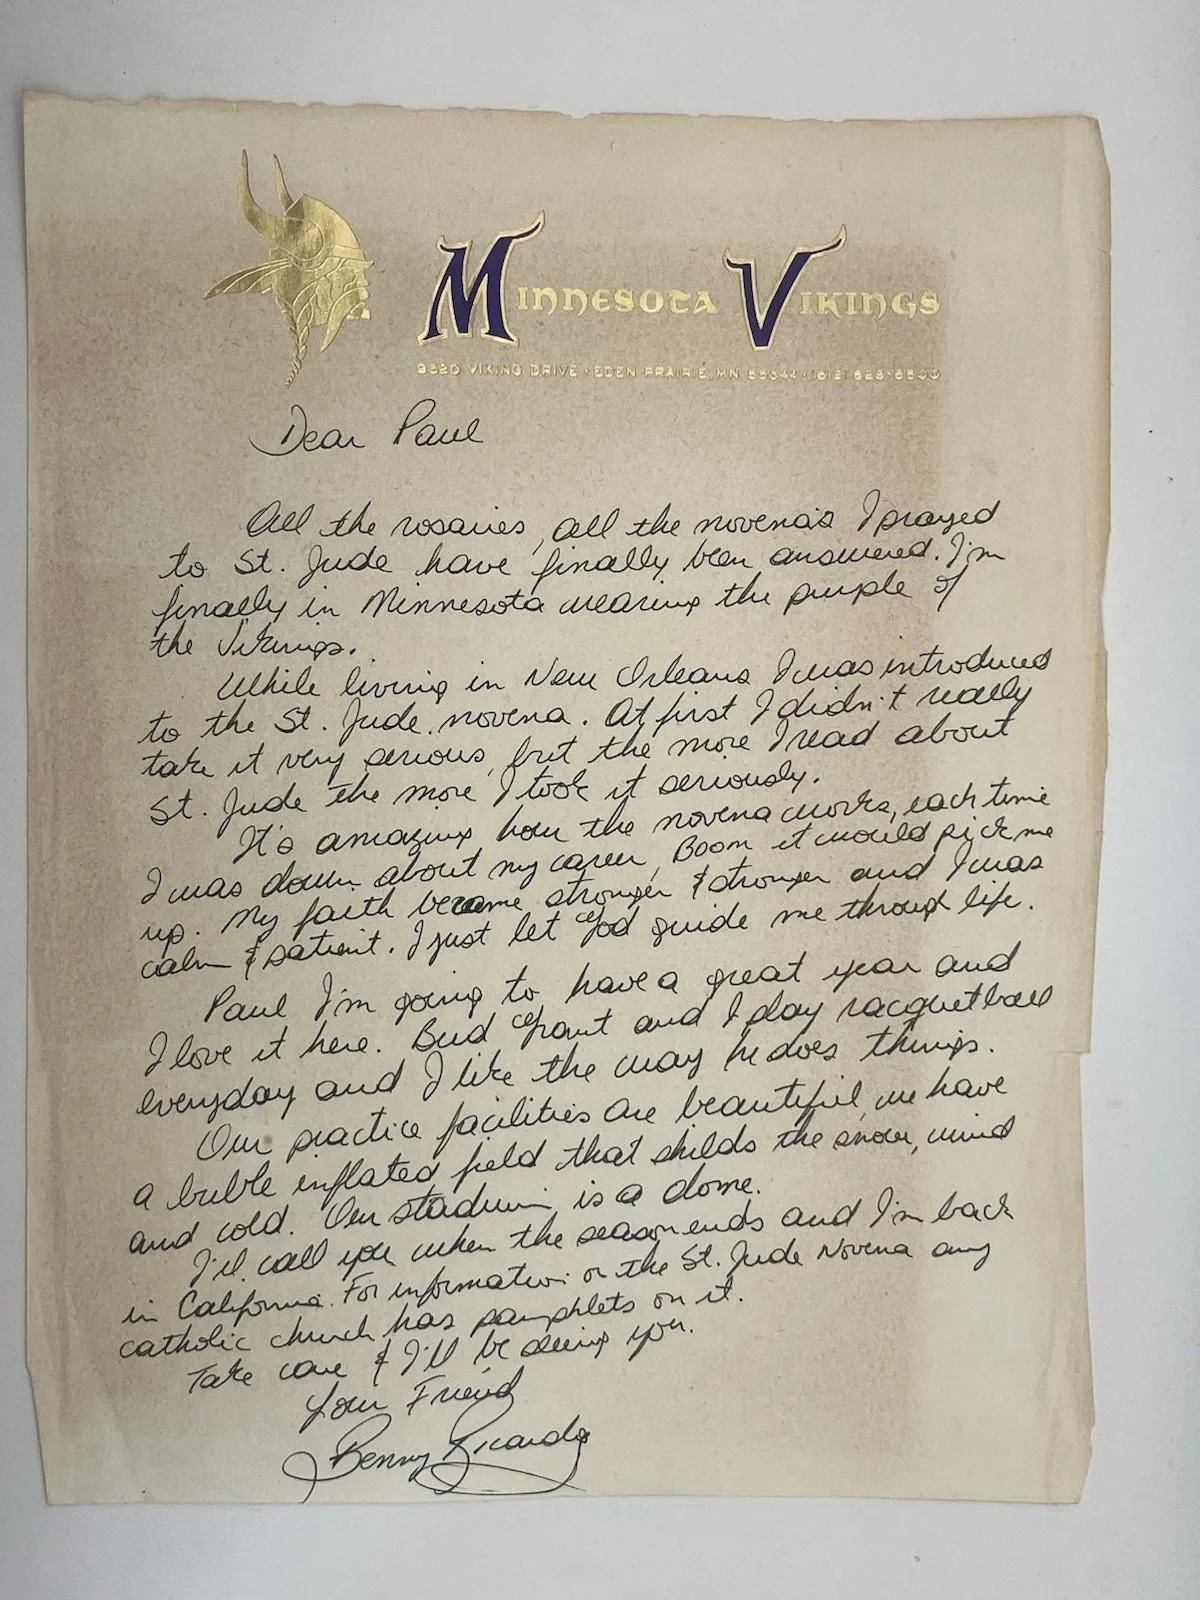 MINNESOTA VIKINGS
9520 VIKING DRIVE · EDEN PRAIRIE, MN 55344 · (612) 828-6500
Dear Paul
All the rosaries, all the novena's I prayed
to St. Jude have finally been answered. I'm
finally in Minnesota wearing the purple of
the Vikings.
While living in New Orleans I was introduced
to the St. Jude novena. At first I didn't really
take it very serious, but the more I read about
St. Jude the more I took it seriously.
It's amazing how the novena works, each time
I was down about my career, Boom it would pick me
up. My faith became stronger & stronger and I was
calm & patient. I just let God guide me through life.
Paul I'm going to have a great year and
I love it here. Bud Grant and I play racquetball
everyday and I like the way he does things.
Our practice facilities are beautiful, we have
a buble inflated field that shilds the snow, wind
and cold. Our stadium is a dome.
I'll call you when the season ends and I'm back
in California. For information on the St. Jude Novena any
catholic church has pamphlets on it.
Take care & I'll be seeing you.
Your Friend
Benny Ricardo